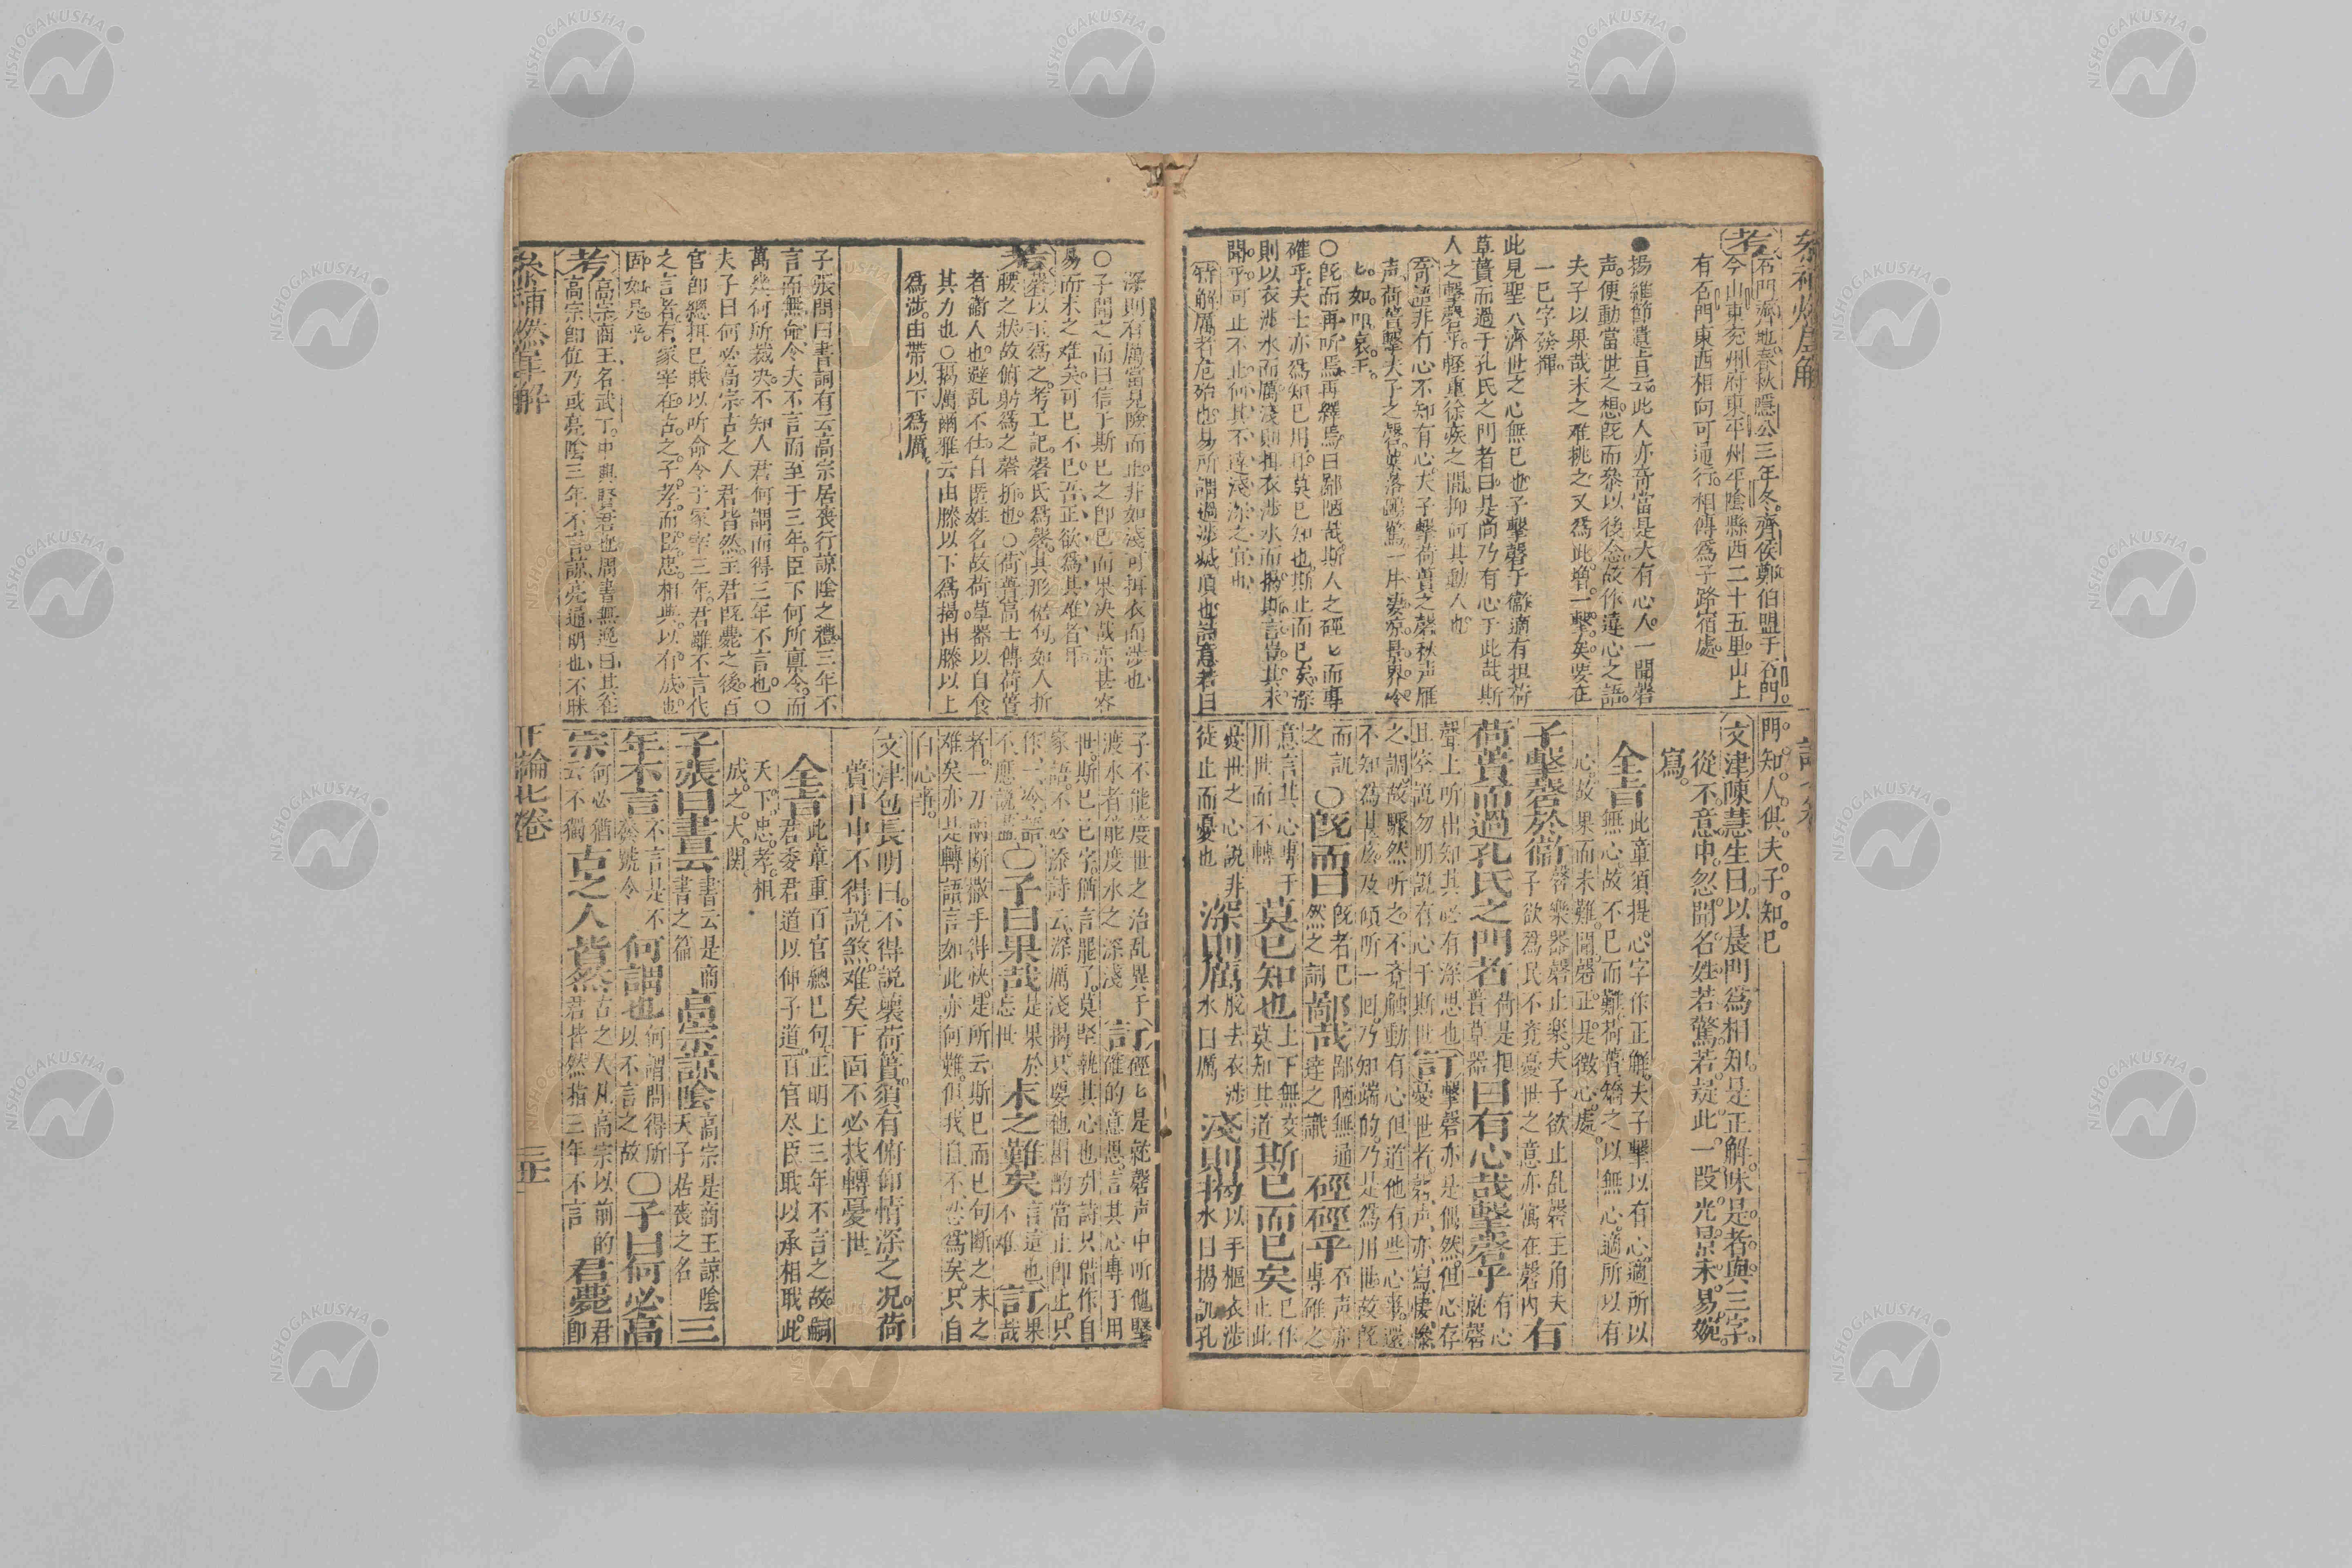 考 石門齊地春秋隱公三年冬齊侯鄭伯盟于石門
今山東兖州府東平州平陰縣西二十五里山上
有石門東西相向可通行相傳爲子路宿處
●楊維節遺旨云此人亦奇當是大有心人一聞磬
声便動當世之想既而叅以後念故作違心之語
夫子以果哉末之难挑之又爲此增一擊矣要在
一已字發揮
此見聖人濟世之心無已也子擊磬于衞適有担荷
草蕢而過于孔氏之門者曰是尚乃有心于此哉斯
人之擊磬乎輕重徐疾之間抑何其動人也
奇語非有心不知有心夫子擊荷蕢之磬秋声雁
声荷蕢擊夫子之磬葉落鴉驚一片凄凉景界冷
〇既而再听焉再繹焉曰鄙陋哉斯人之硜匕而專
確乎夫士亦爲知已用耳莫已知也斯止而已矣深
則以衣涉水而厲淺則揭衣涉水而揭斯言豈其未
聞乎可止不止何其不達淺深之宜也
門知人倶夫子知已
文津陳慧生曰以晨門爲相知是正解味是者與三字
從不意中忽聞名姓若驚若疑此一段光景未易婉
寫
全旨 此章須提心字作正解夫子擊以有心適所以
無心故不已而難荷蕢矯之以無心適所以有
心故果而未難聞磬正是徵心處
子擊磬於衞 磬樂器磬止樂夫子欲止乱磬主角夫
子欲爲民不竟憂世之意亦寓在磬内 有
荷蕢而過孔氏之門者 荷是担蕢草器 曰有心哉擊磬乎 有心就磬
聲上听出知其必有深思也 訂 擊磬亦是偶然但心存
且空説勿明説有心于斯世 憂世者磬声亦寫悽慘
之調故驟然听之不竟触動有心但道他有些心事還
不知爲甚広及傾听一囘乃知端的乃是爲用世故既
而訊之 〇既而曰 既者已然之詞 鄙哉 鄙陋無通達之識 硜硜乎 石声亦專確之
意言其心專于用世而不轉 莫已知也 上下無交莫知其道 斯已而已矣 已作止此
憂世之心説非徒止而憂也 深則厲 脱去衣涉水曰厲 淺則揭 以手摳衣涉水曰揭訊孔
深則有厲當見險而止非如淺可揭衣而涉也
〇子聞之而曰信乎斯已之卽已而果决哉亦甚容
易而末之难矣可已不已吾正欲爲其难者耳
考 磬以玉爲之考工記磬氏爲磬其形倨句如人折
腰之狀故俯躬爲之磬折也〇荷蕢高士傳荷蕢
者衞人也避乱不仕自匿姓名故荷草器以自食
其力也〇揭厲爾雅云由膝以下爲揭由膝以上
爲涉由帶以下爲厲
子張問曰書詞有云高宗居喪行諒陰之禮三年不
言而無命令夫不言而至于三年臣下何所禀令而
萬幾何所裁决不知人君何謂而得三年不言也〇
夫子曰何必高宗古之人君皆然主君既薨之後百
官卽總揖已職以听命令于冢宰三年君雖不言代
之言者有冢宰在古之子孝而臣忠相與以有成也
固如是乎
考 高宗商王名武丁中興賢君也周書無逸曰其在
高宗卽位乃或亮陰三年不言諒亮通明也不昧
子不能度世之治乱異于渡水者能度水之深淺 訂 硜匕是就磬声中听他堅確的意思言其心專于用
世斯已已字猶言罷了莫堅執其心也引詩只借作自
家語不必添詩云深厲淺揭只要他斟酌當止卽止只
作一冷語不應説盡 〇子曰果哉 是果於忘世 末之難矣 言這也不难 訂 果哉
者一刀兩断撒手得快是所云斯已而已句断之末之
难矣亦是轉語言如此亦何難但我自不忍爲矣只自
白心事
文津 包長明曰不得説壞荷蕢須有俯仰情深之况荷
蕢世中不得説煞难矣下面不必找轉憂世
全旨 此章重百官總已句正明上三年不言之故嗣
君委君道以伸子道百官尽臣職以承相職此
天下忠孝相
成之大関
子張曰書云 書云是商書之篇 高宗諒陰 高宗是商王諒陰天子居喪之名 三
年不言 不言是不發號令 何謂也 何謂問得所以不言之故 〇子曰何必高
宗 何必猶云不獨 古之人皆然 古之人凡高宗以前的君皆然指三年不言 君薨 君卽